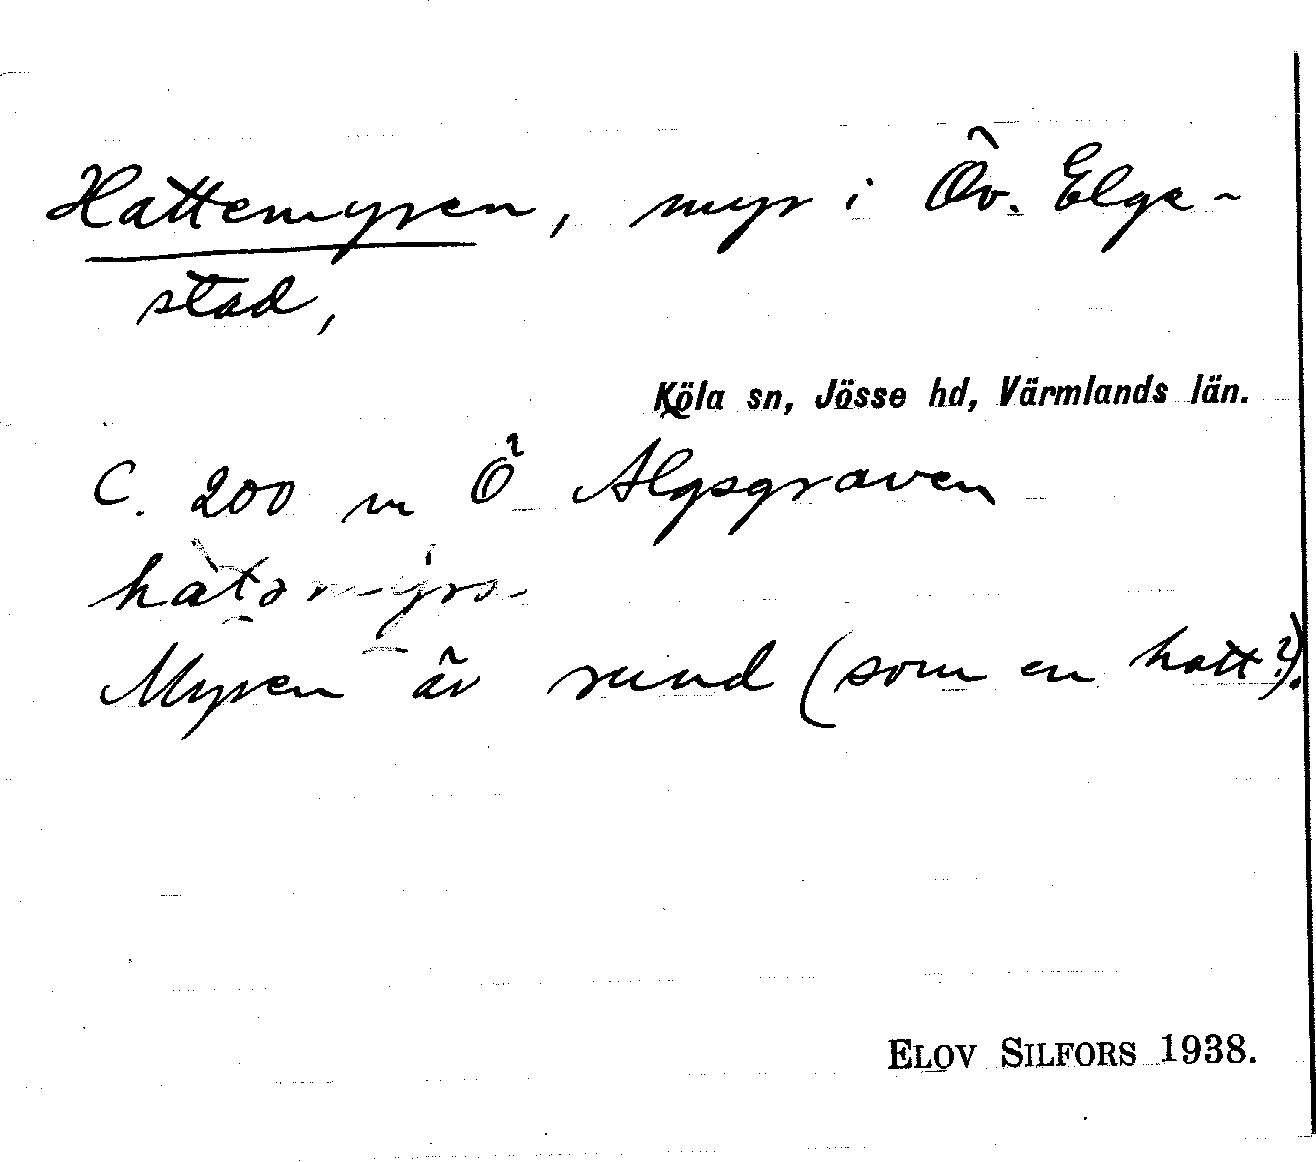 Hattemyren, myr i Öv. Elge-
stad,
Köla sn, Jösse hd, Värmlands län.
C. 200 m Ö Algsgraven
Myren är rund (som en hatt?).
ELOV SILFORS 1938.